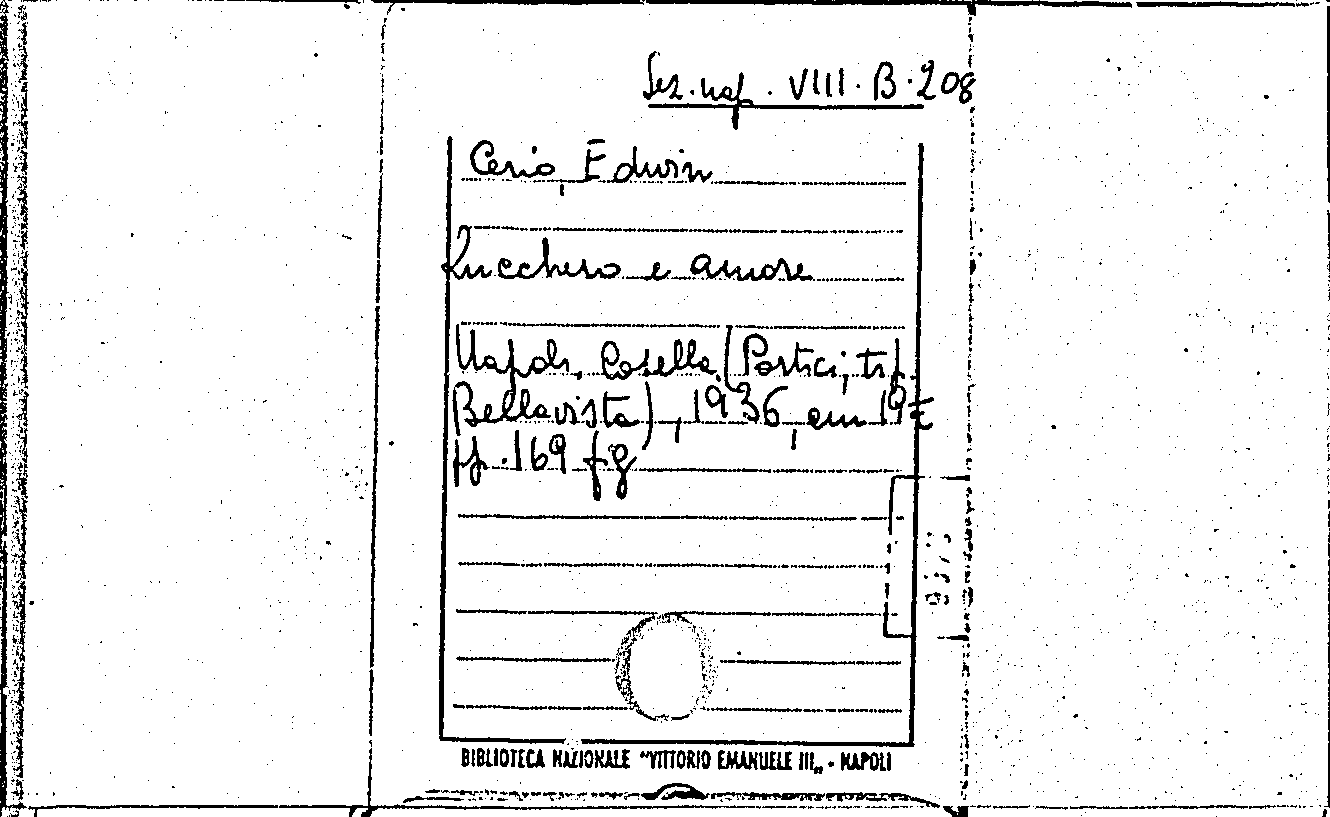 Sez. nap. VIII. B. 208
Cerio, Edwin
Zucchero e amore
Napoli, Casella (Portici, tip.
Bellavista), 1936, cm 19
pp. 169 fg
BIBLIOTECA NAZIONALE "VITTORIO EMANUELE III„ - NAPOLI